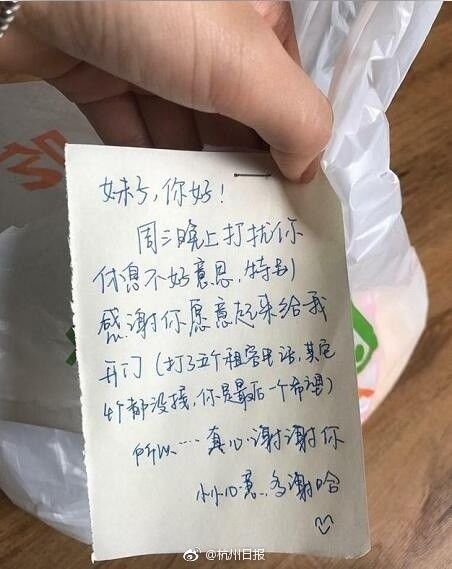 妹子，你好！
周二晚上打扰你
休息不好意思，特别
感谢你愿意起来给我
开门（打了五个租客电话，其它
4个都没接，你是最后一个希望）
所以……真心谢谢你
小小心意，多谢哈
@杭州日报